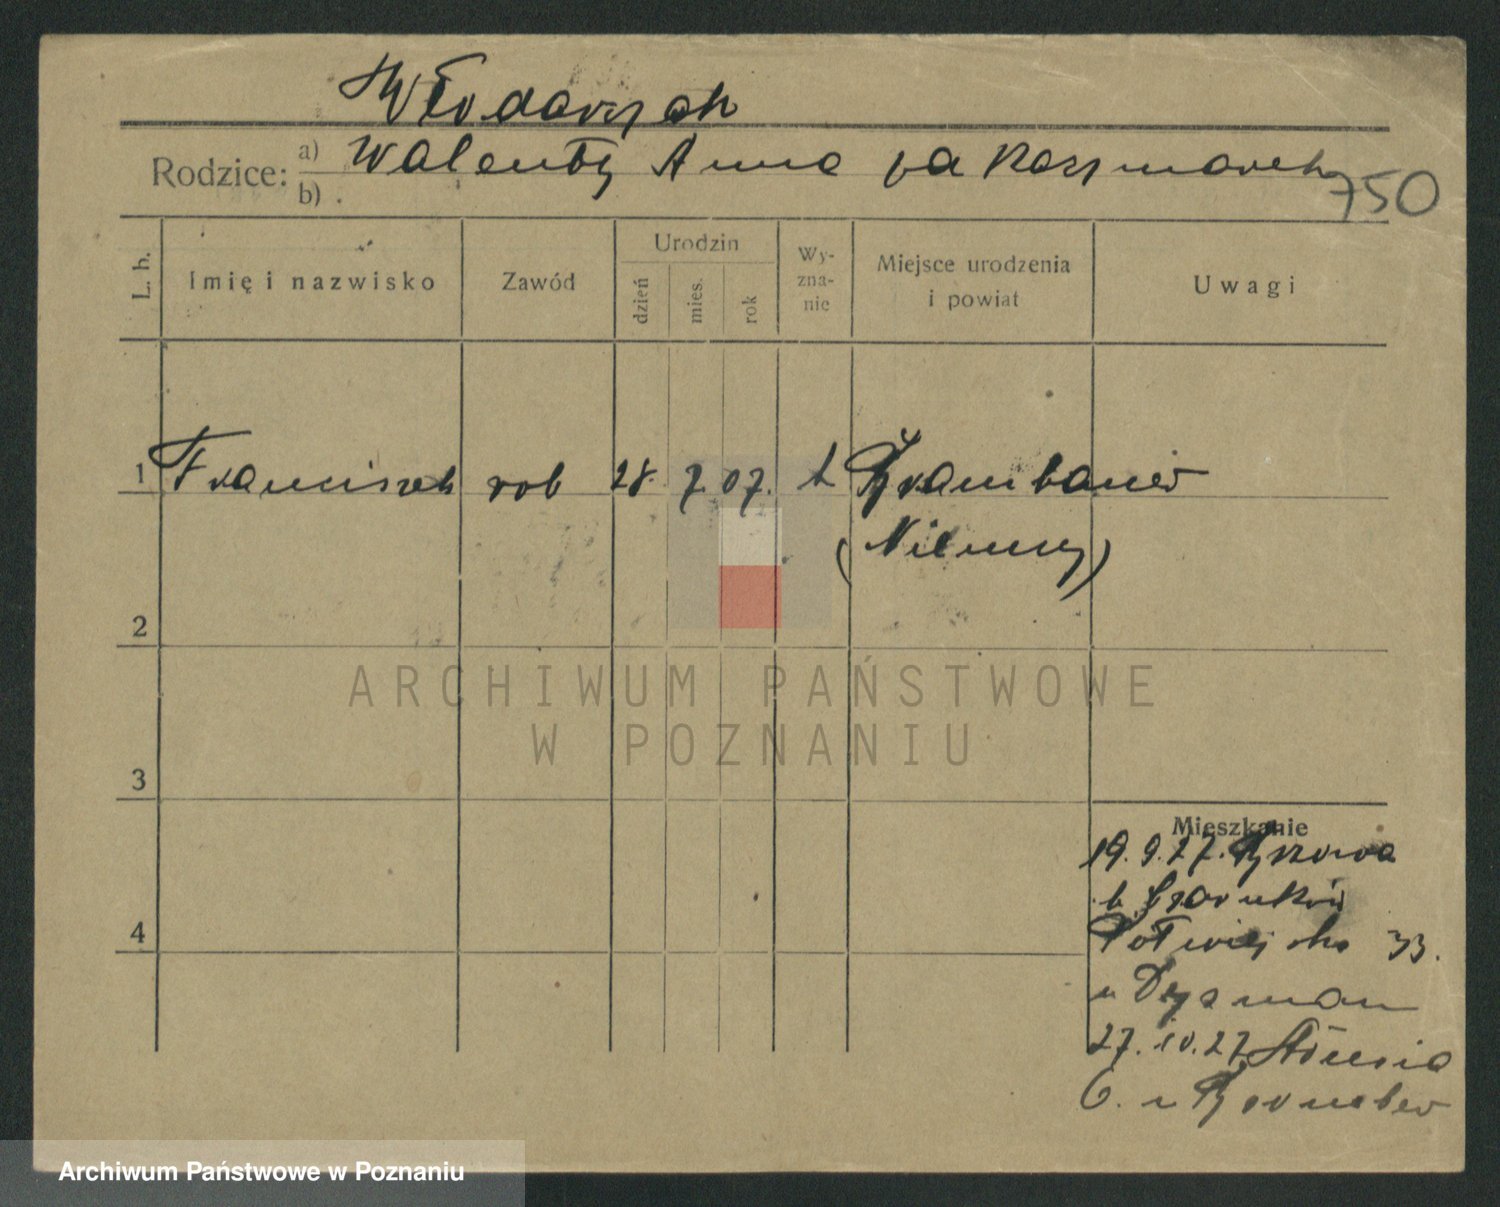 Włodarczak
Rodzice: a) Walenty Anna Kaczmarek
b)
750
L. b.
Imię i nazwisko
Zawód
Urodzin
dzień
mies.
rok
Wy-
zna-
nie
Miejsce urodzenia
i powiat
Uwagi
1 Franciszek rob 28. 7. 07.
(Niemcy)
2
ARCHIWUM PAŃSTWOWE
W POZNANIU
3
Mieszkanie
19. 9. 27.
Półwiejska 33.
4
27. 10. 27
6. u
Archiwum Państwowe w Poznaniu